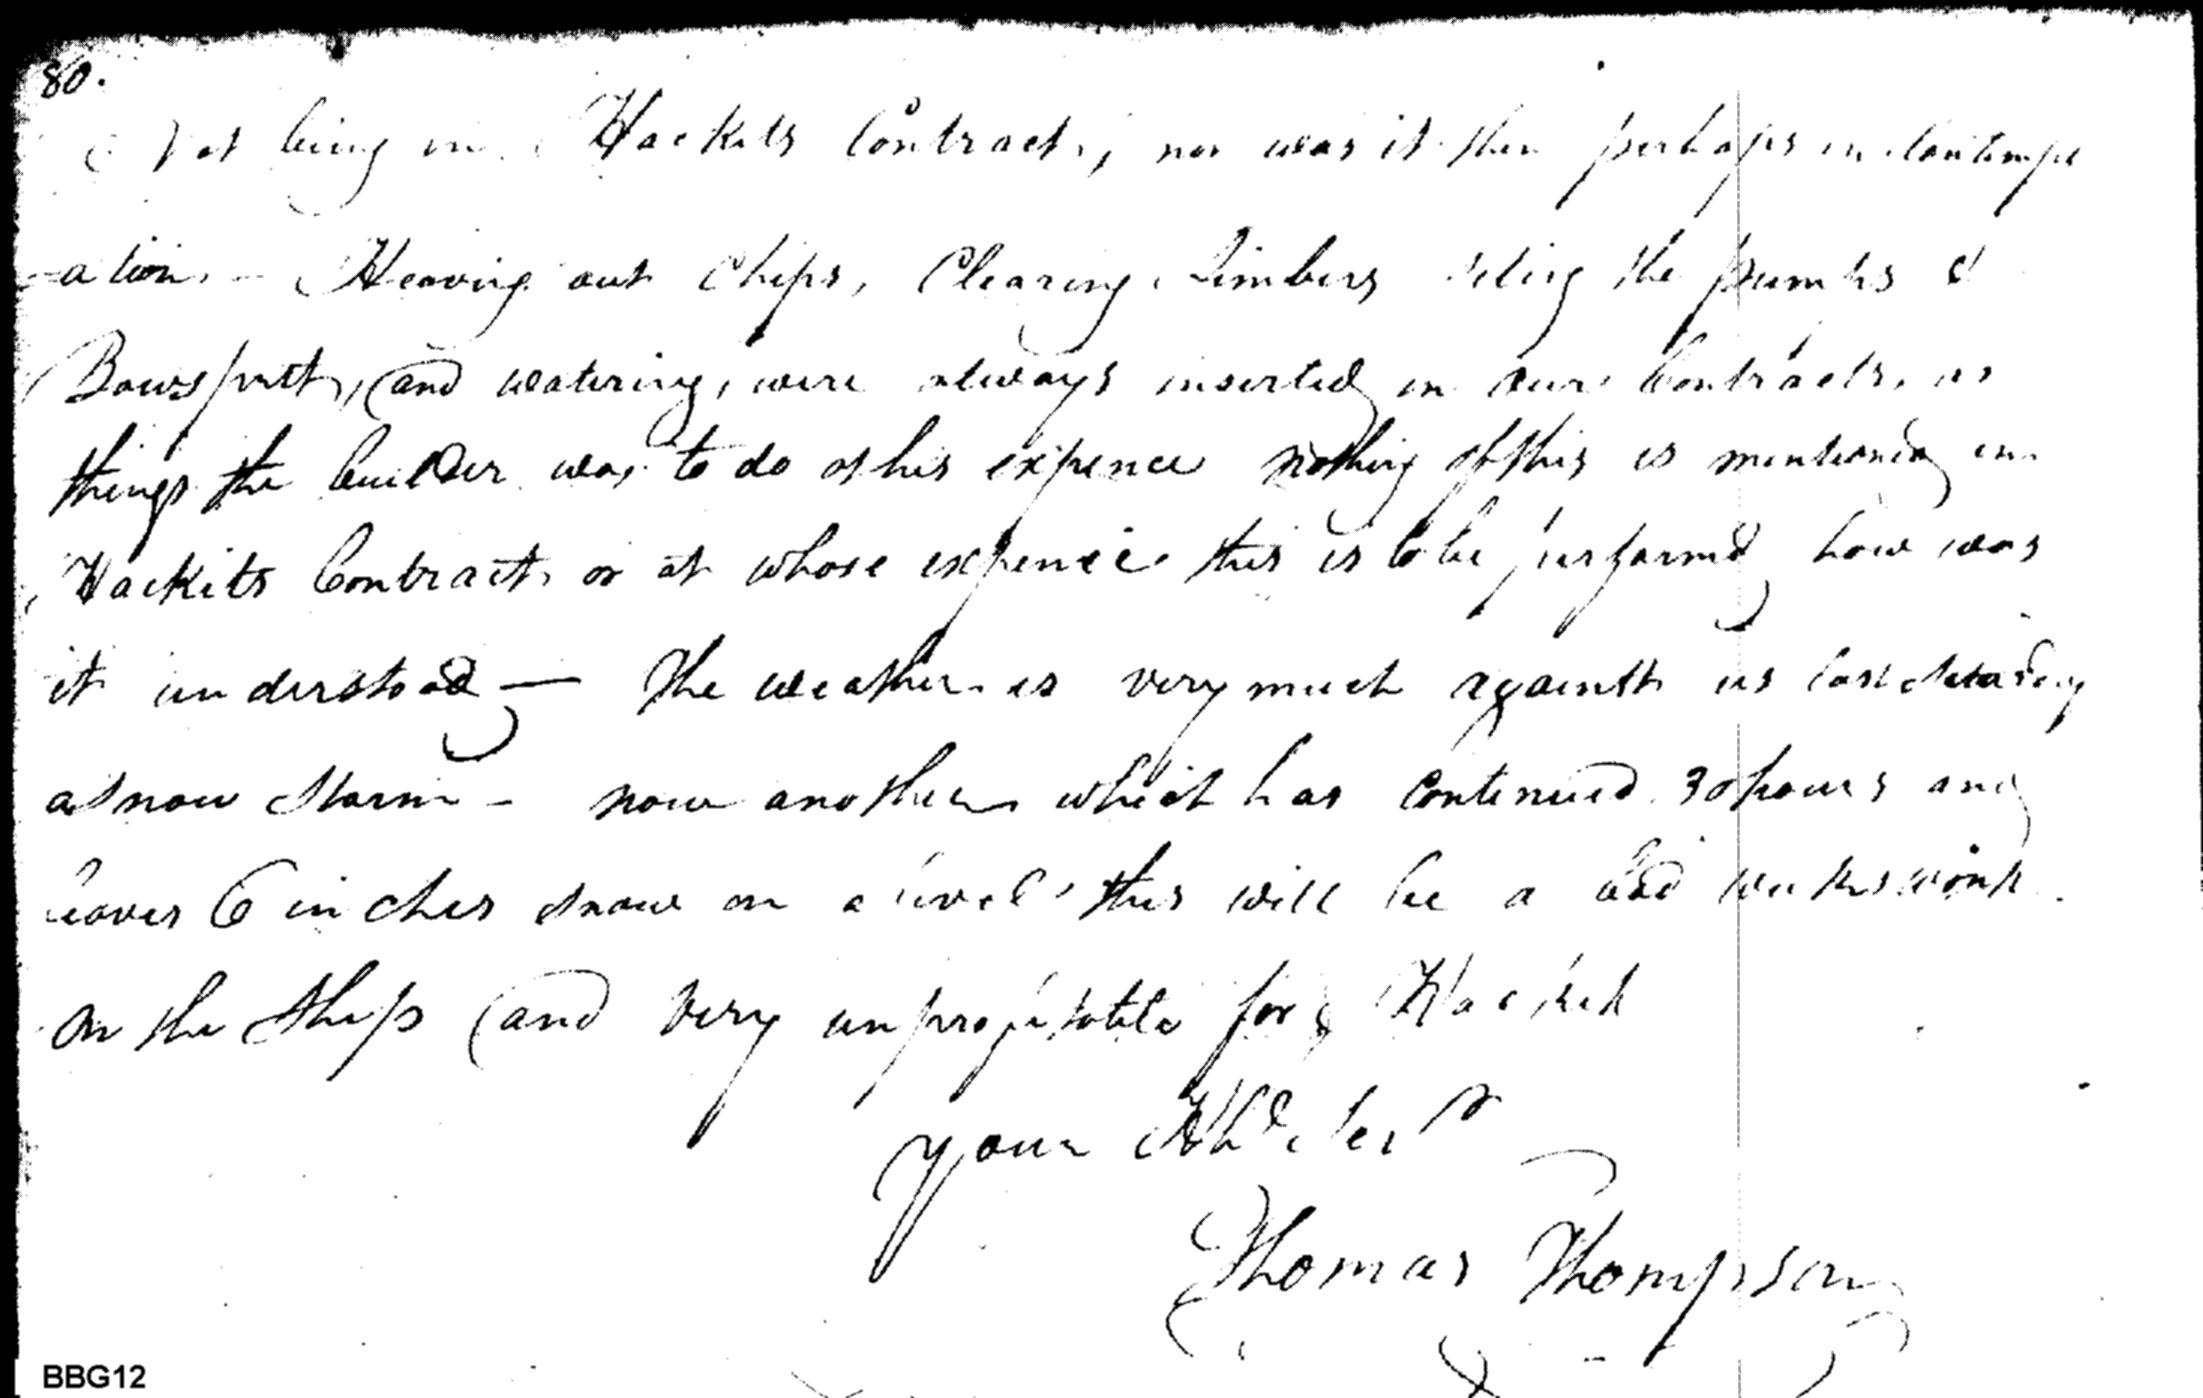 80.
Not being in Hackets Contract, nor was it then perhaps in Contempl
=ation. - Heaving out Chips, Clearing Limbers the pumps &
Bowspritt, and watering, were always inserted in our Contracts, as
things the builder was to do at his expence nothing of this is mentioned in
Hackits Contract, or at whose expence this is to be performd, how was
it understood — The weather is very much against us last
a Snow Storm - now another which has Continued 30 hours and
leaves 6 inches snow on a level this will be a bad weeks work
on the Ship and very unprofitable for Hacket
Your Hble Sert
Thomas Thompson
BBG12